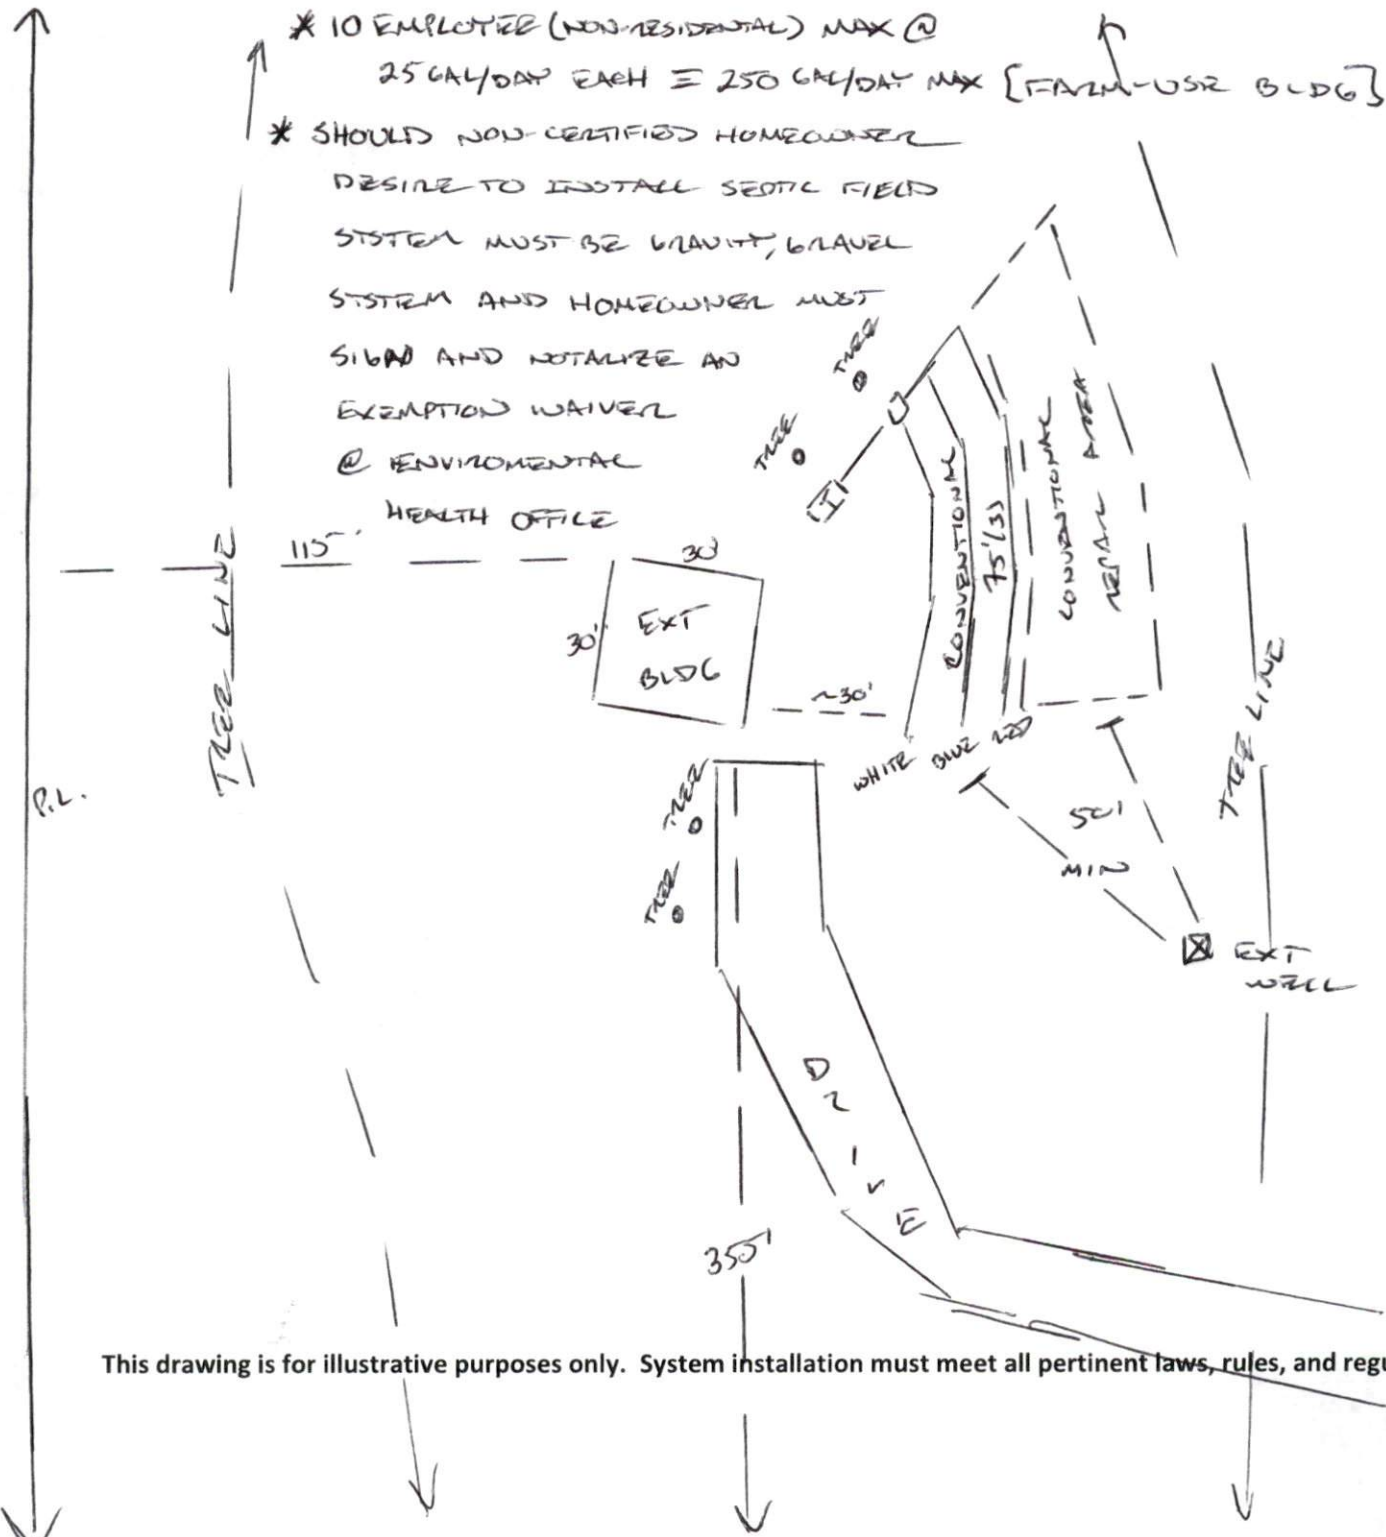 * 10 EMPLOYEE (NON-RESIDENTAL) MAX @
25 GAL/DAY EACH = 250 GAL/DAY MAX [FARM-USE BLDG]
* SHOULD NON-CERTIFIED HOMEOWNER
DESIRE TO INSTALL SEPTIC FIELD
SYSTEM MUST BE GRAVITY, GRAVEL
SYSTEM AND HOMEOWNER MUST
SIGN AND NOTARIZE AN
EXEMPTION WAIVER
@ ENVIROMENTAL
HEALTH OFFICE
TREE
TREE
CONVENTIONAL
75'(3)
CONVENTIONAL
REPAIR AREA
115'
30'
30'
EXT
BLDG
~30'
TREE LINE
TREE LINE
WHITE BLUE RED
P.L.
TREE
TREE
50'
MIN
EXT
WELL
DRIVE
355'
This drawing is for illustrative purposes only. System installation must meet all pertinent laws, rules, and regu